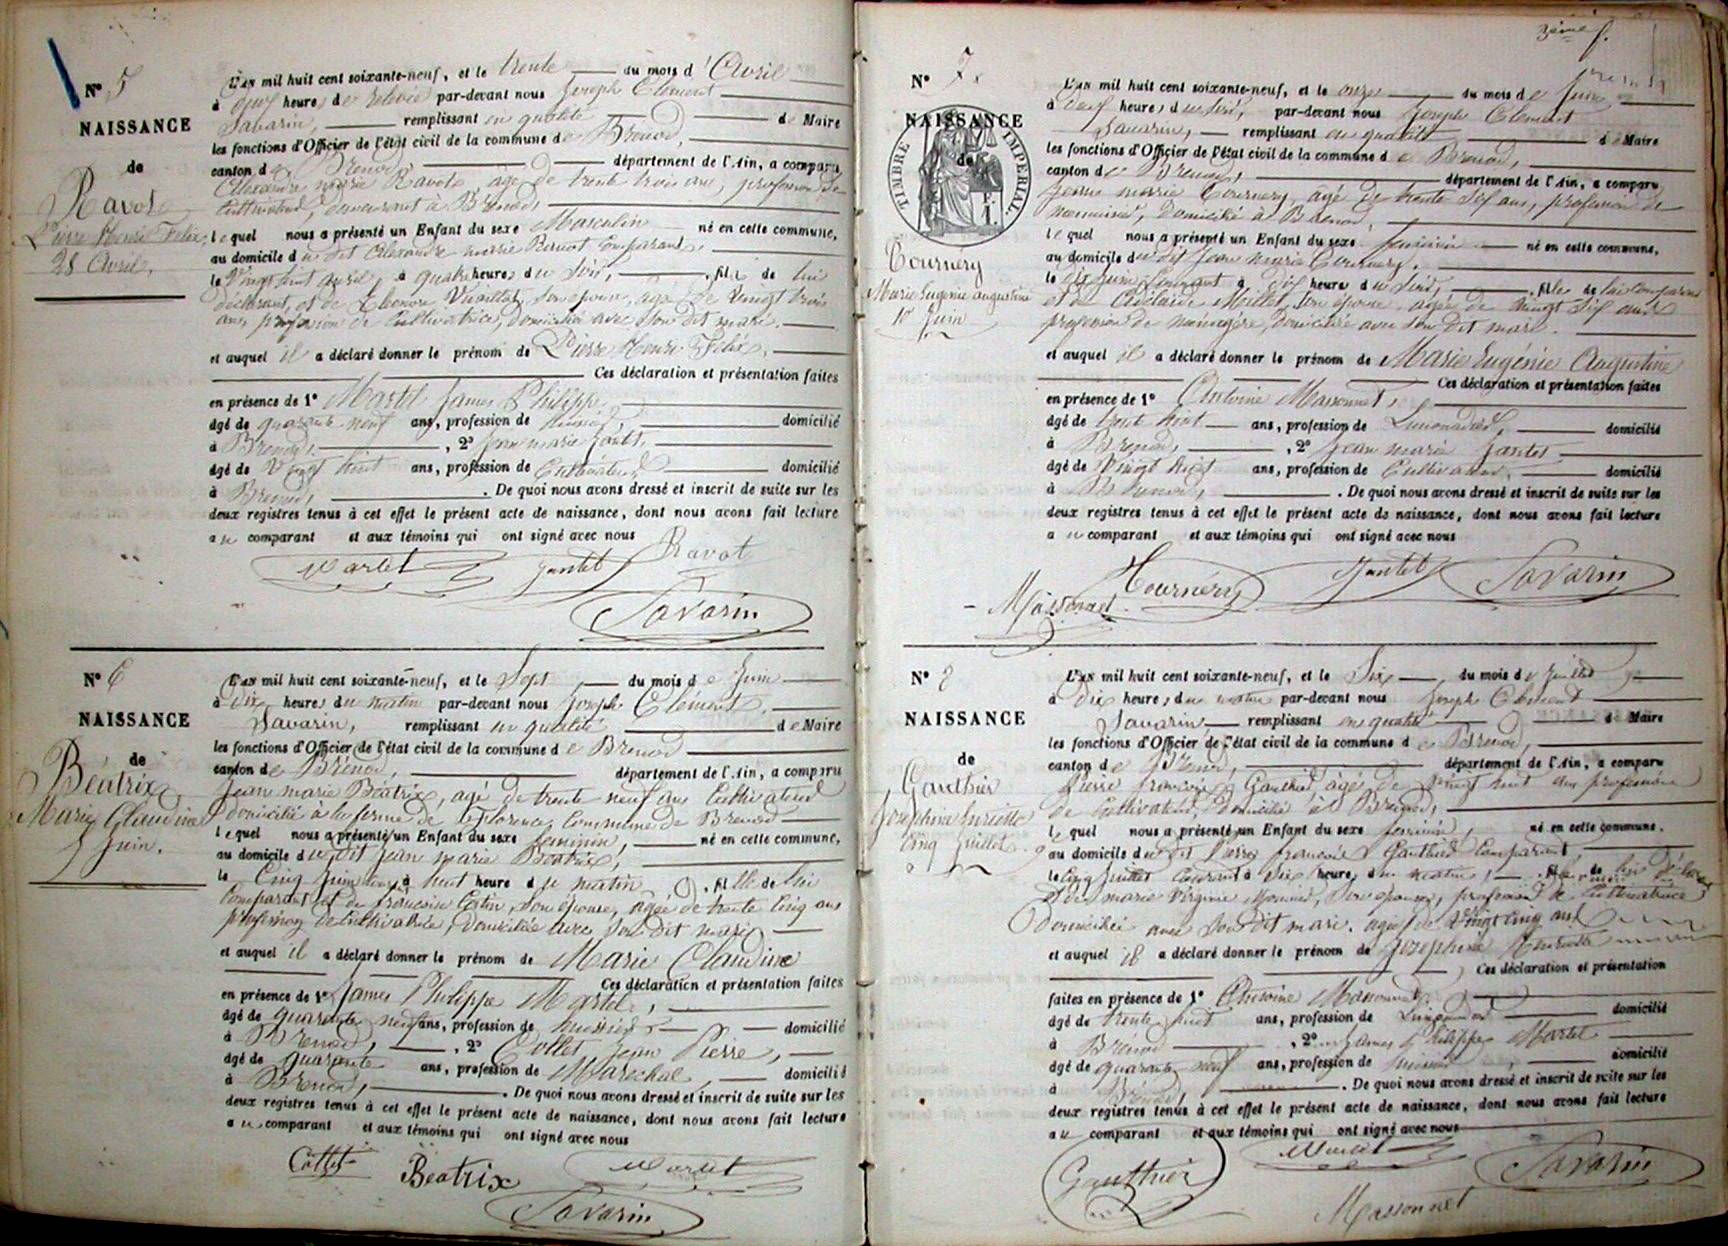 N° 5
NAISSANCE
de
Ravot
Pierre Henri Felix,
28 Avril.
L'an mil huit cent soixante-neuf, et le trente du mois d'Avril
à heures de relevée par-devant nous Joseph Clément
Savarin, remplissant en qualité de Maire
les fonctions d'Officier de l'état civil de la commune de Brenod,
canton de Brenod, département de l'Ain, a comparu
Alexandre marie Ravot, age de trente trois ans, profession de
Cultivateur, demeurant à Brenod,
lequel nous a présenté un Enfant du sexe Masculin né en cette commune,
au domicile du dit Alexandre marie Ravot Comparant,
le Vingt huit avril, à quatre heures du Soir, fils de lui
déclarant, et de Eleonore son épouse, age de Vingt trois
ans, profession de Cultivatrice, domiciliée avec son dit mari.
et auquel il a déclaré donner le prénom de Pierre Henri Félix.
Ces déclaration et présentation faites
en présence de 1° Martel James Philippe,
âgé de quarante neuf ans, profession de domicilié
à Brenod, 2° Jean marie Jantet,
âgé de Vingt huit ans, profession de Cultivateur domicilié
à Brenod, . De quoi nous avons dressé et inscrit de suite sur les
deux registres tenus à cet effet le présent acte de naissance, dont nous avons fait lecture
au comparant et aux témoins qui ont signé avec nous
Ravot
Martel Jantet
Savarin
N° 6
NAISSANCE
de
Béatrix
Marie Claudine
5 Juin.
L'an mil huit cent soixante-neuf, et le Sept du mois de Juin
à dix heures du matin par-devant nous Joseph Clément
Savarin, remplissant en qualité de Maire
les fonctions d'Officier de l'état civil de la commune de Brenod
canton de Brénod, département de l'Ain, a comparu
Jean marie Béatrix, agé de trente neuf ans Cultivateur
domicilié à la ferme de Commune de Brenod
lequel nous a présenté un Enfant du sexe féminin, né en cette commune,
au domicile du dit Jean marie Béatrix,
le Cinq Juin à huit heure du matin, fille de lui
Comparant et de françoise son épouse, agée de trente Cinq ans
profession de Cultivatrice, domiciliée avec Son dit mari
et auquel il a déclaré donner le prénom de Marie Claudine
Ces déclaration et présentation faites
en présence de 1° James Philippe Martel,
âgé de quarante neuf ans, profession de domicilié
à Brenod, 2° Collet Jean Pierre,
âgé de quarante ans, profession de Maréchal, domicilié
à Brenod, . De quoi nous avons dressé et inscrit de suite sur les
deux registres tenus à cet effet le présent acte de naissance, dont nous avons fait lecture
au comparant et aux témoins qui ont signé avec nous
Collet Béatrix Martel
Savarin
3ème f.
N° 7
NAISSANCE
de
TIMBRE IMPERIAL
Tournery
Marie Eugenie augustine
10 Juin
L'an mil huit cent soixante-neuf, et le onze du mois de Juin
à neuf heures du soir, par-devant nous Joseph Clément
Savarin, remplissant en qualité de Maire
les fonctions d'Officier de l'état civil de la commune de Brenod,
canton de Brenod, département de l'Ain, a comparu
Jean marie Tournery, agé de trente Six ans, profession de
menuisier, domicilié à Brenod,
lequel nous a présenté un Enfant du sexe féminin né en cette commune,
au domicile du dit Jean marie Tournery,
le dix Juin Courant à dix heure du Soir, fille de lui Comparant
et de Adélaïde Millet, son épouse, agée de Vingt Six ans
profession de ménagère, domiciliée avec son dit mari.
et auquel il a déclaré donner le prénom de Marie Eugénie Augustine
Ces déclaration et présentation faites
en présence de 1° Antoine Massonnet,
âgé de trente huit ans, profession de Limonadier, domicilié
à Brenod, 2° Jean marie Jantet,
âgé de Vingt huit ans, profession de Cultivateur, domicilié
à Brenod, . De quoi nous avons dressé et inscrit de suite sur les
deux registres tenus à cet effet le présent acte de naissance, dont nous avons fait lecture
au comparant et aux témoins qui ont signé avec nous
Massonnet Tournery Jantet Savarin
N° 8
NAISSANCE
de
Gauthier
Josephine Henriette
Cinq Juillet
L'an mil huit cent soixante-neuf, et le Six du mois de Juillet
à Dix heures du matin par-devant nous Joseph Clément
Savarin, remplissant en qualité de Maire
les fonctions d'Officier de l'état civil de la commune de Brenod,
canton de Brenod, département de l'Ain, a comparu
Pierre françois Gauthier, âgé de vingt huit ans profession
de Cultivateur, domicilié à Brenod,
lequel nous a présenté un Enfant du sexe féminin, né en cette commune.
au domicile du dit Pierre françois Gauthier Comparant
le Cinq Juillet Courant à Six heures du matin, fille de lui déclarant
et de marie Virginie son épouse, profession de Cultivatrice
domiciliée avec Son dit mari. agée de Vingt Cinq ans
et auquel il a déclaré donner le prénom de Josephine Henriette
Ces déclaration et présentation
faites en présence de 1° Antoine Massonnet,
âgé de trente huit ans, profession de Limonadier domicilié
à Brénod 2° James Philippe Martel
âgé de quarante neuf ans, profession de domicilié
à Brénod, . De quoi nous avons dressé et inscrit de suite sur les
deux registres tenus à cet effet le présent acte de naissance, dont nous avons fait lecture
au comparant et aux témoins qui ont signé avec nous
Gauthier Martel Savarin
Massonnet